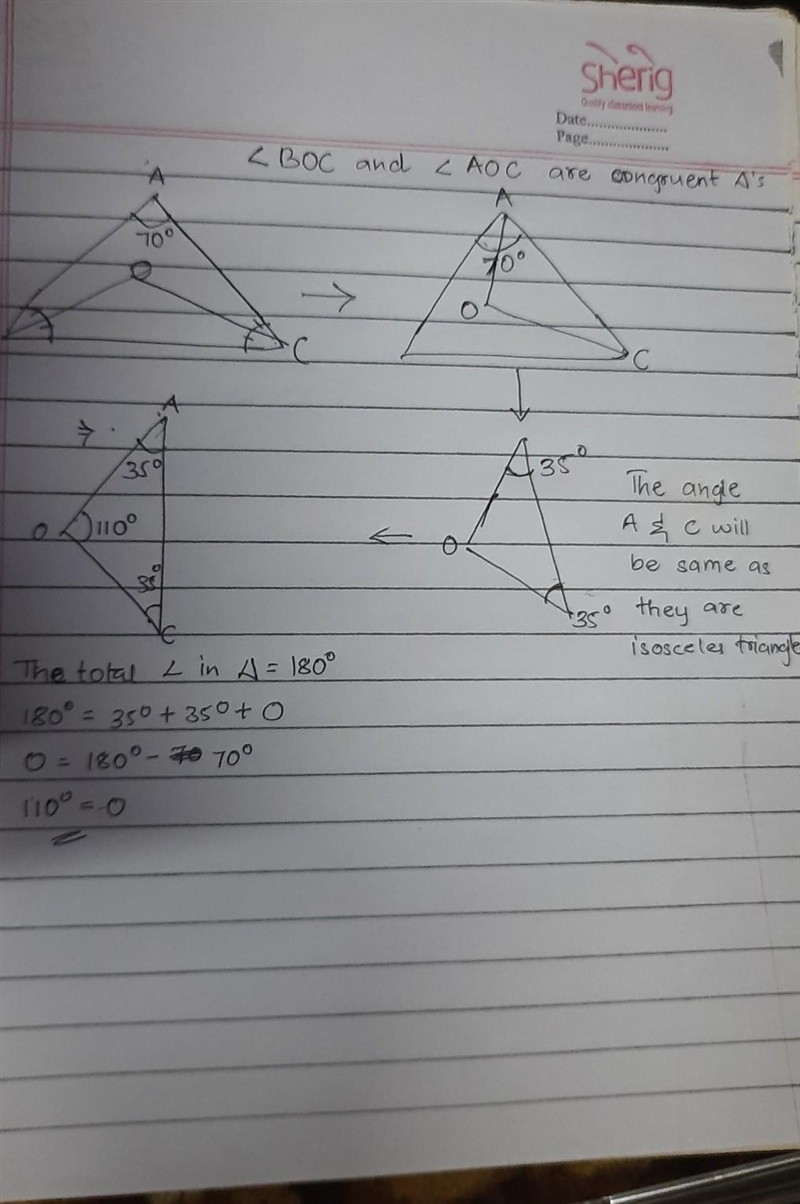 Sherig
Quality classroom learning
Date....................
Page....................
∠BOC and ∠AOC are congruent Δ's
A
70°
O
C
→
A
70°
O
C
↓
⇒ A
35°
O 110°
35°
C
←
35°
O
35°
The angle
A & C will
be same as
they are
isosceles triangle
The total ∠ in Δ = 180°
180° = 35° + 35° + O
O = 180° - 70°
110° = O